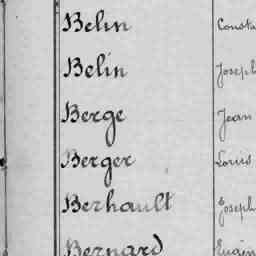 Belin Consta
Belin Joseph
Berge Jean
Berger Louis
Berhault Joseph
Bernard Eugèn